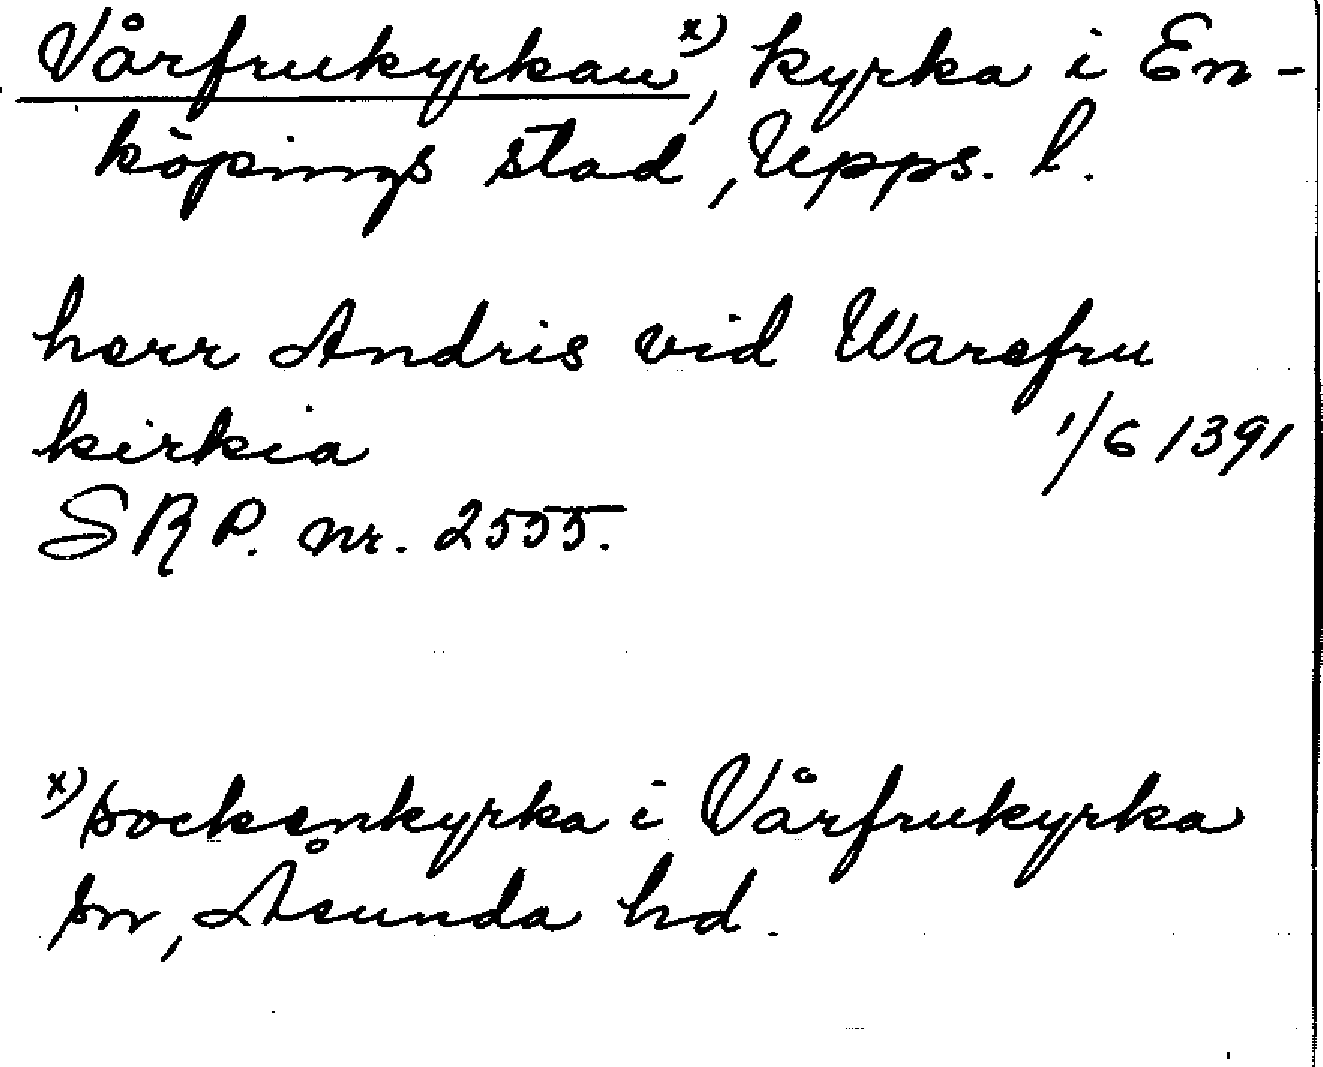 Vårfrukyrkan x), kyrka i En-
köpings stad, Upps. l.
herr Andris vid Warefru
kirkia 1/6 1391
SRP. nr. 2555.
x) sockenkyrka i Vårfrukyrka
sn, Åsunda hd.